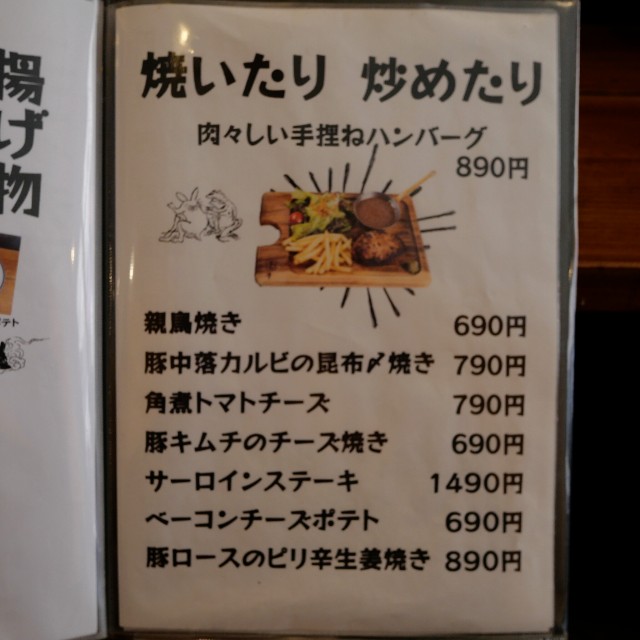 揚げ物
ポテト
焼いたり 炒めたり
肉々しい手捏ねハンバーグ
890円
親鳥焼き 690円
豚中落カルビの昆布〆焼き 790円
角煮トマトチーズ 790円
豚キムチのチーズ焼き 690円
サーロインステーキ 1490円
ベーコンチーズポテト 690円
豚ロースのピリ辛生姜焼き 890円